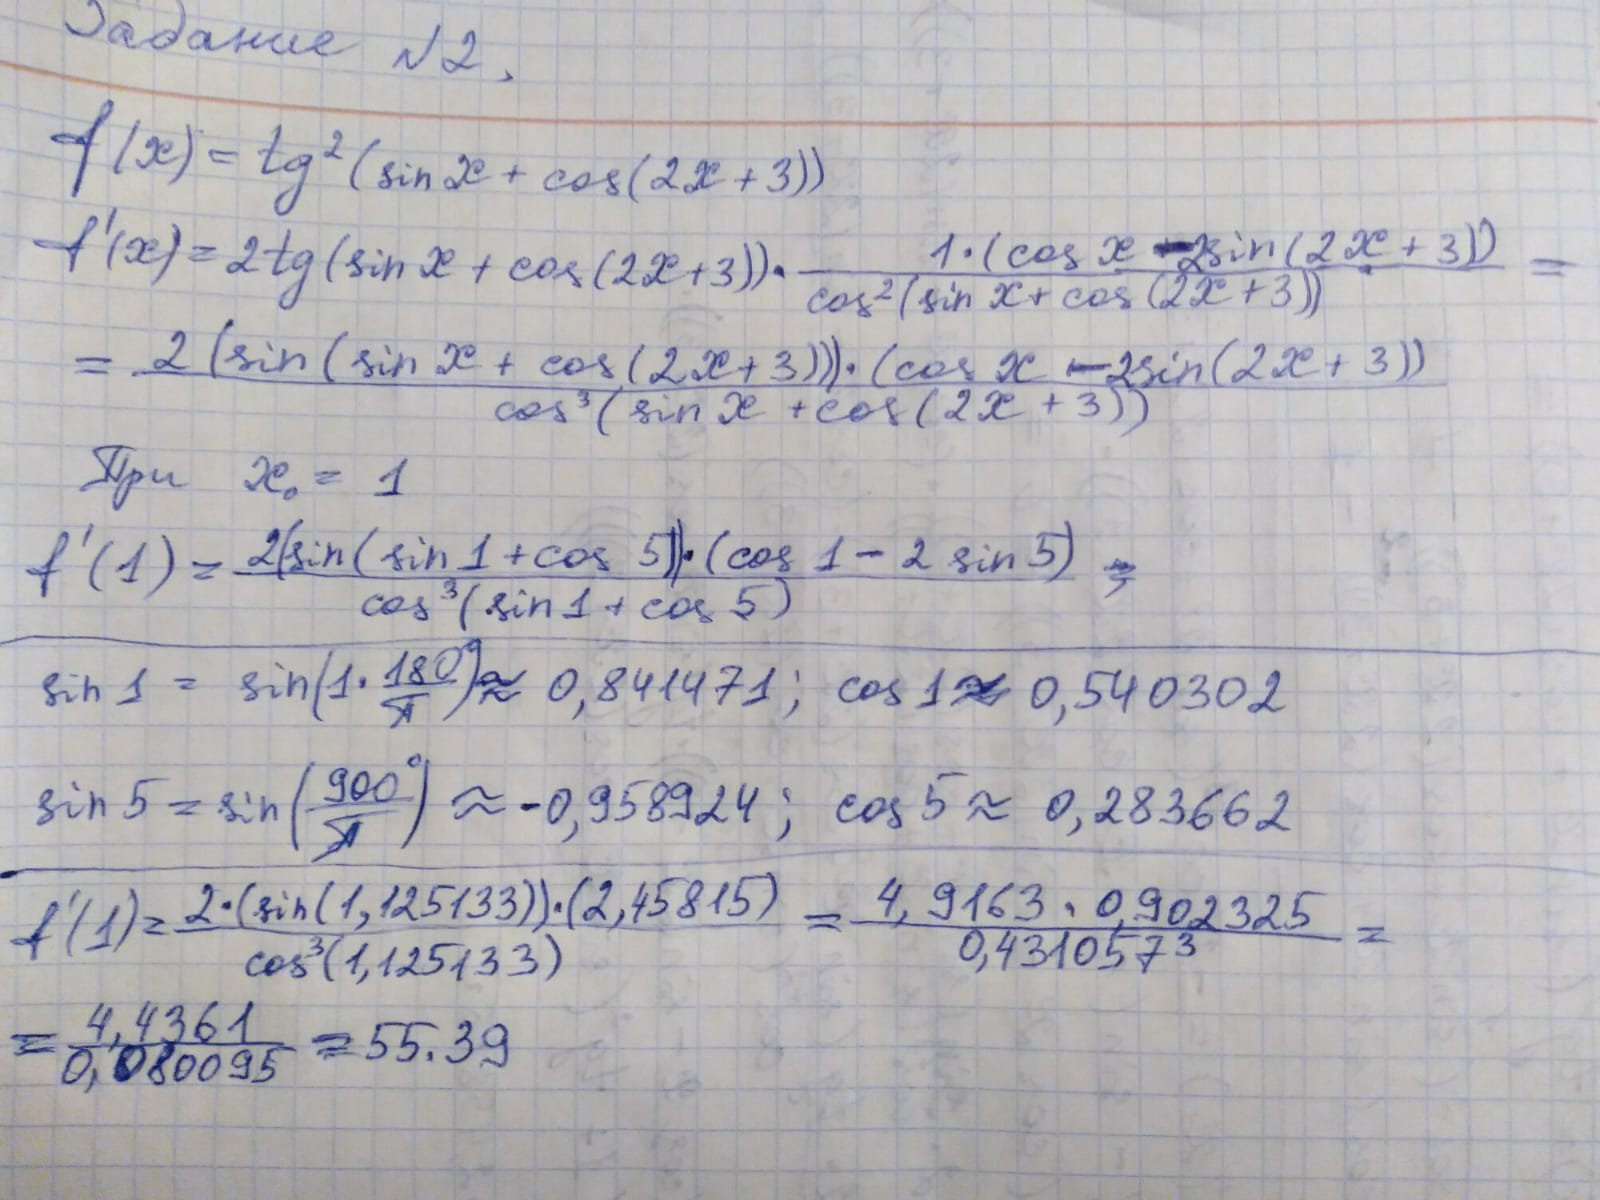 Задание №2.
f(x) = tg²(sin x + cos(2x + 3))
f'(x) = 2tg(sin x + cos(2x+3)) · 1·(cos x - 2sin(2x + 3)) / cos²(sin x + cos(2x+3)) =
= 2(sin(sin x + cos(2x+3)))·(cos x - 2sin(2x + 3)) / cos³(sin x + cos(2x + 3))
При x₀ = 1
f'(1) = 2(sin(sin 1 + cos 5))·(cos 1 - 2 sin 5) / cos³(sin 1 + cos 5) =
sin 1 = sin(1·180°/π) ≈ 0,841471; cos 1 ≈ 0,540302
sin 5 = sin(900°/π) ≈ -0,958924; cos 5 ≈ 0,283662
f'(1) = 2·(sin(1,125133))·(2,45815) / cos³(1,125133) = 4,9163 · 0,902325 / 0,4310573 =
= 4,4361 / 0,080095 = 55.39